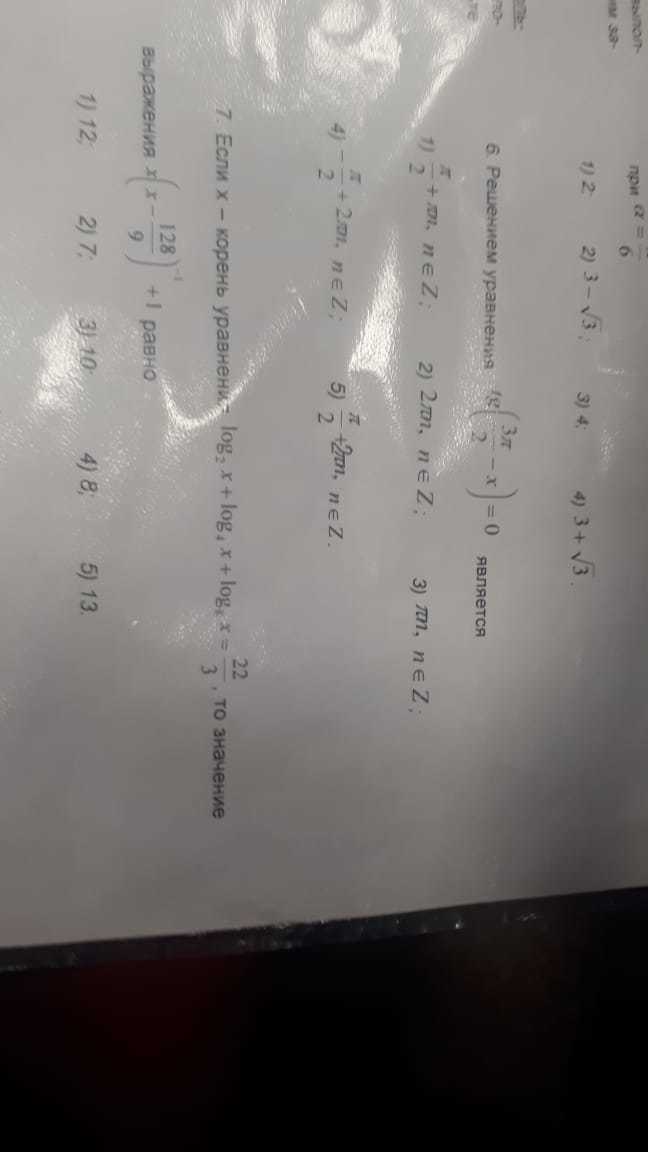 при α = π/6
1) 2; 2) 3 − √3; 3) 4; 4) 3 + √3.
6. Решением уравнения tg(3π/2 − x) = 0 является
1) π/2 + πn, n ∈ Z; 2) 2πn, n ∈ Z; 3) πn, n ∈ Z;
4) −π/2 + 2πn, n ∈ Z; 5) π/2 + 2πn, n ∈ Z.
7. Если x – корень уравнения log₂ x + log₄ x + log₈ x = 22/3, то значение
выражения x(x − 128/9)⁻¹ + 1 равно
1) 12; 2) 7; 3) 10; 4) 8; 5) 13.